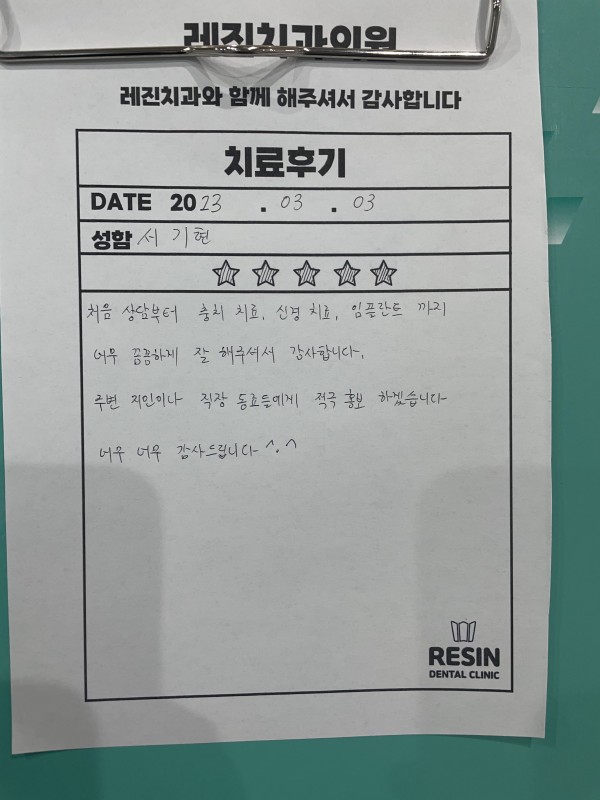 레진치과의원
레진치과와 함께 해주셔서 감사합니다
치료후기
DATE 2023 . 03 . 03
성함 서기현
처음 상담부터 충치 치료, 신경 치료, 임플란트 까지
너무 꼼꼼하게 잘 해주셔서 감사합니다.
주변 지인이나 직장 동료들에게 적극 홍보 하겠습니다
너무 너무 감사드립니다 ^.^
RESIN
DENTAL CLINIC